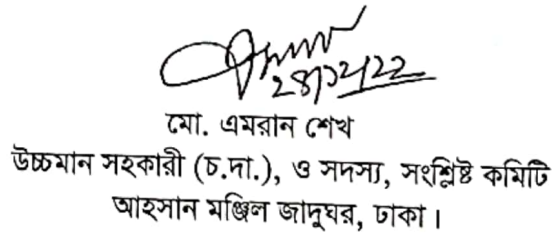 ২৪/১২/২২
মো. এমরান শেখ
উচ্চমান সহকারী (চ.দা.), ও সদস্য, সংশ্লিষ্ট কমিটি
আহসান মঞ্জিল জাদুঘর, ঢাকা।